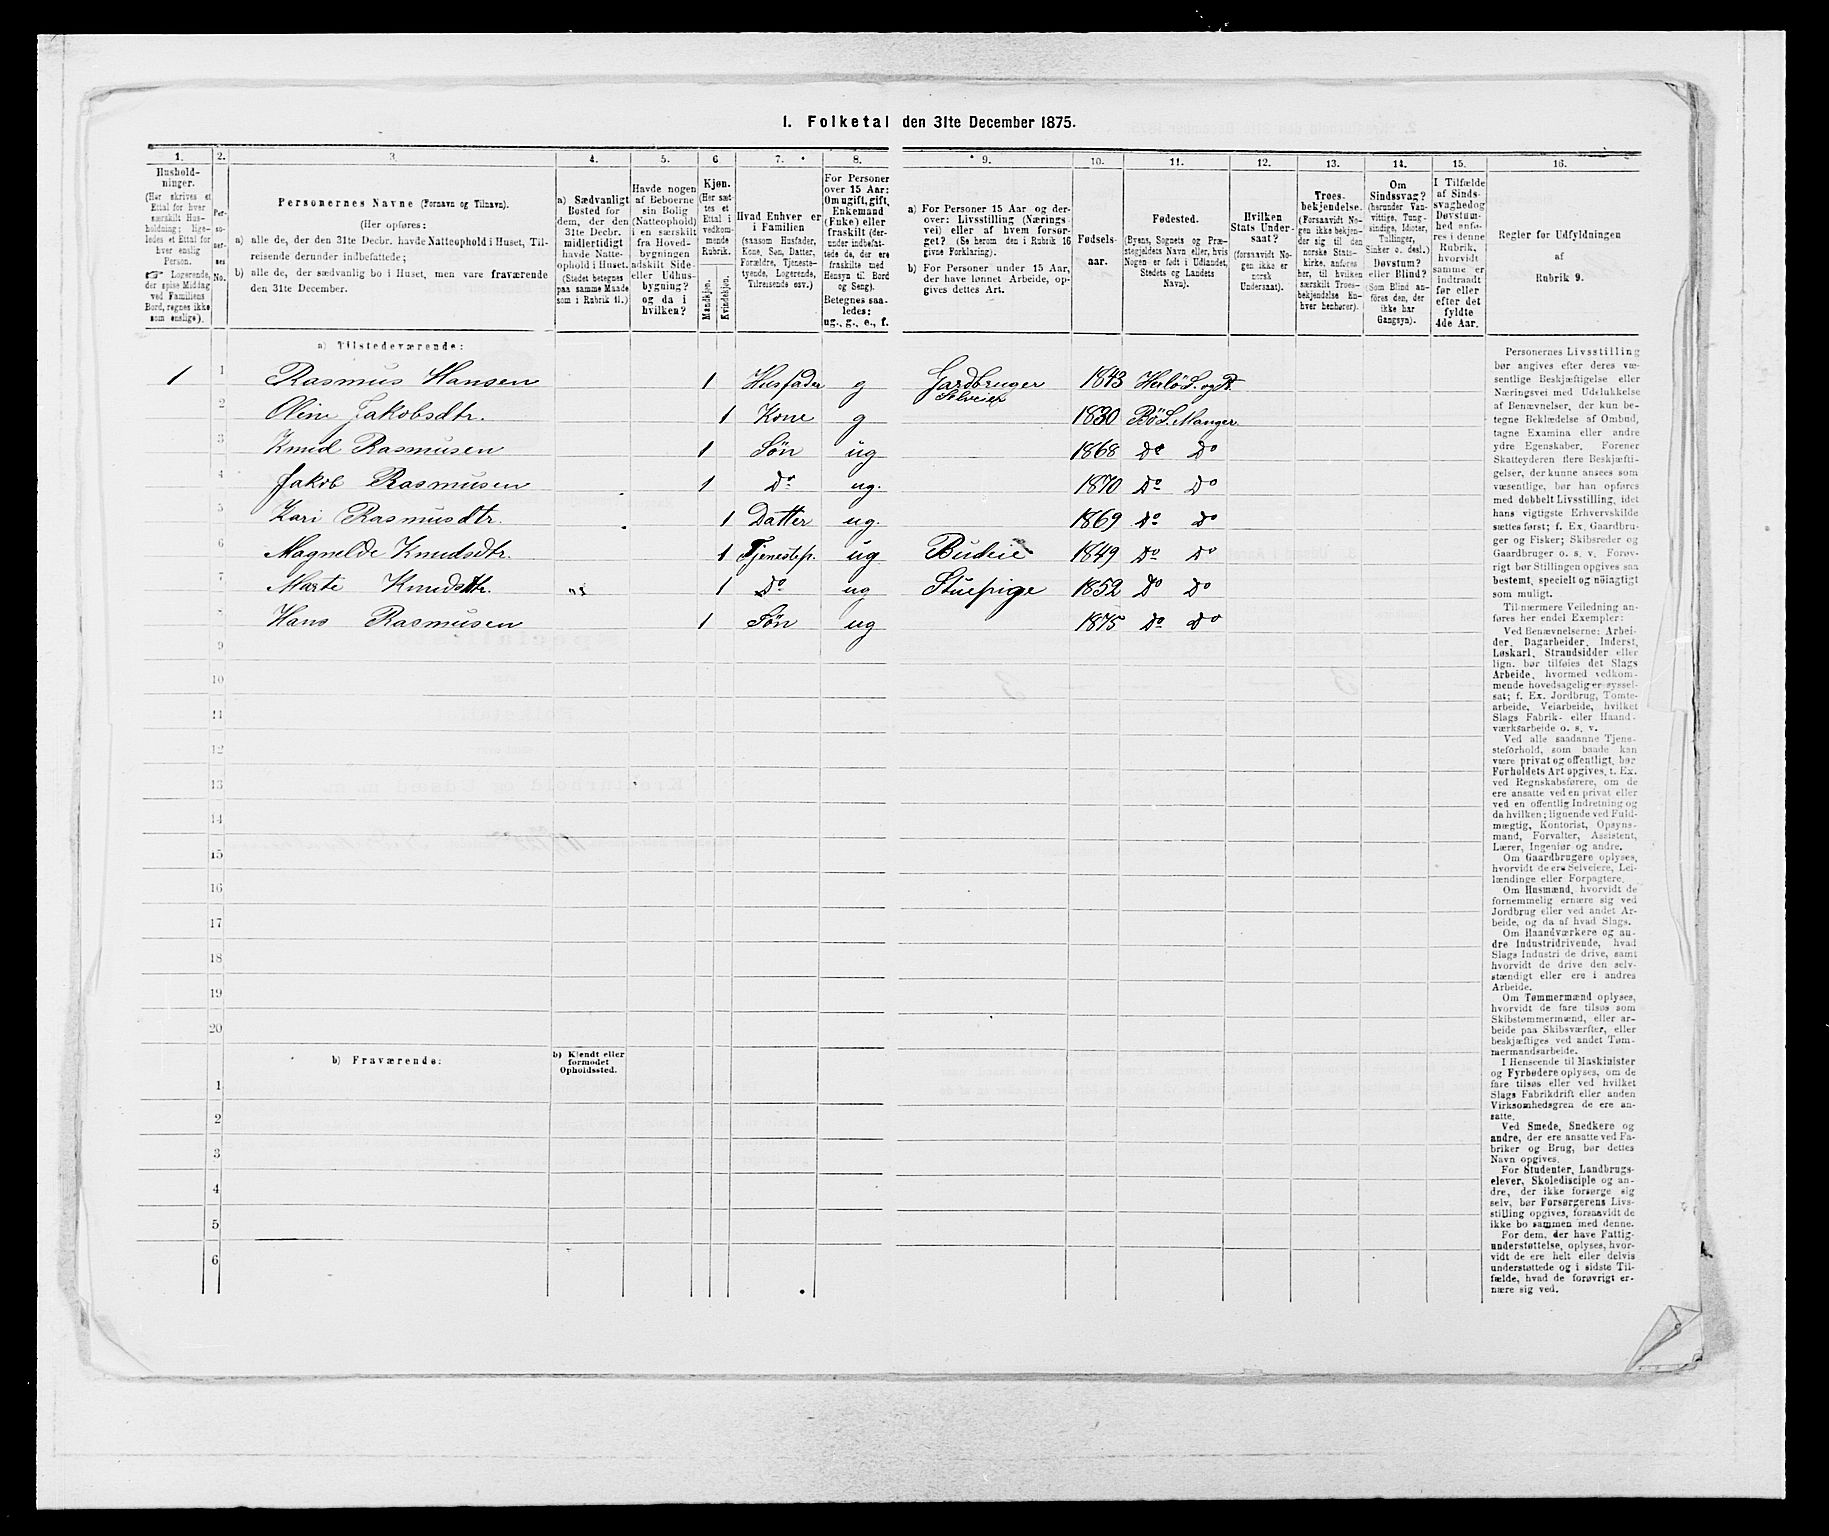 1. Folketal den 31te December 1875.
1. 2. 3. 4. 5. 6 7. 8. 9. 10. 11. 12. 13. 14. 15. 16.
Hushold-
ninger.
(Her skrives et
Ettal for hver
særskilt Hus-
holdning; lige-
ledes et Ettal for
hver enslig
Person.
☞ Logerende,
der spise Middag
ved Familiens
Bord, regnes ikke
som enslige).
Per-
so-
ner-
nes
No.
Personernes Navne (Fornavn og Tilnavn).
(Her opføres:
a) alle de, der den 31te Decbr. havde Natteophold i Huset, Til-
reisende derunder indbefattede;
b) alle de, der sædvanlig bo i Huset, men vare fraværende
den 31te December.
a) Sædvanligt
Bosted for
dem, der den
31te Decbr.
midlertidigt
havde Natte-
ophold i Huset.
(Stedet betegnes
paa samme Maade
som i Rubrik 11.)
Havde nogen
af Beboerne
sin Bolig
(Natteophold)
i en særskilt
fra Hoved-
bygningen
adskilt Side-
eller Udhus-
bygning?
og da i
hvilken?
Kjøn.
(Her sæt-
tes et
Ettal i
vedkom-
mende
Rubrik.
Mandkjøn.
Kvindekjøn.
Hvad Enhver er
i Familien
(saasom Husfader,
Kone, Søn, Datter,
Forældre, Tjeneste-
tyende, Logerende,
Tilreisende osv.)
For Personer
over 15 Aar:
Om ugift, gift,
Enkemand
(Enke) eller
fraskilt (der-
under indbefat-
tede de, der ere
fraskilte med
Hensyn til Bord
og Seng).
Betegnes saa-
ledes:
ug., g., e., f.
a) For Personer 15 Aar og der-
over: Livsstilling (Nærings-
vei) eller af hvem forsør-
get? (Se herom den i Rubrik 16
givne Forklaring).
b) For Personer under 15 Aar,
der have lønnet Arbeide, op-
gives dettes Art.
Fødsels-
aar.
Fødested.
(Byens, Sognets og Præ-
stegjeldets Navn eller, hvis
Nogen er født i Udlandet,
Stedets og Landets
Navn).
Hvilken
Stats Under-
saat?
(forsaavidt No-
gen ikke er
norsk
Undersaat).
Troes-
bekjendelse.
(Forsaavidt No-
gen ikke bekjen-
der sig til den
norske Stats-
kirke, anføres
her, til hvilken
særskilt Troes-
bekjendelse En-
hver henhører).
Om
Sindssvag?
(herunder Van-
vittige, Tung-
sindige, Idioter,
Tullinger,
Sinker o. desl.)
Døvstum?
eller Blind?
(Som Blind an-
føres den, der
ikke har
Gangsyn).
I Tilfælde
af Sinds-
svaghed og
Døvstum-
hed anfø-
res i denne
Rubrik,
hvorvidt
samme er
indtraadt
før eller
efter det
fyldte
4de Aar.
Regler for Udfyldningen
af
Rubrik 9.
a) Tilstedeværende:
1 1 Rasmus Hansen 1 Husfader g Gardbruger Selveier 1843 Herlö S. og P.
2 Oline Jakobsdtr. 1 Kone g 1830 Bö S. Manger
3 Knud Rasmusen 1 Søn ug 1868 Do Do
4 Jakob Rasmusen 1 Do ug. 1870 Do Do
5 Kari Rasmusdtr. 1 Datter ug. 1869 Do Do
6 Magnelde Knudsdtr. 1 Tjenestep. ug Budeie 1849 Do Do
7 Marte Knudsdtr. 1 Do ug Stuepige 1852 Do Do
8 Hans Rasmusen 1 Søn ug 1875 Do Do
9
10
11
12
13
14
15
16
17
18
19
20
b) Fraværende:
b) Kjendt eller
formodet
Opholdssted.
1
2
3
4
5
6
Personernes Livsstilling
bør angives efter deres væ-
sentlige Beskjæftigelse eller
Næringsvei med Udelukkelse
af Benævnelser, der kun be-
tegne Beklædelse af Ombud,
tagne Examina eller andre
ydre Egenskaber. Forener
Skatteyderen flere Beskjæfti-
gelser, der kunne ansees som
væsentlige, bør han opføres
med dobbelt Livsstilling, idet
hans vigtigste Erhvervskilde
sættes først; f. Ex. Gaardbru-
ger og Fisker; Skibsreder og
Gaardbruger o. s. v. Forøv-
rigt bør Stillingen opgives saa
bestemt, specielt og nöiagtigt
som muligt.
Til nærmere Veiledning an-
føres her endel Exempler:
Ved Benævnelserne: Arbei-
der, Dagarbeider, Inderst,
Løskarl, Strandsidder eller
lign. bør tilføies det Slags
Arbeide, hvormed vedkom-
mende hovedsagelig er syssel-
sat; f. Ex. Jordbrug, Tomte-
arbeide, Veiarbeide, hvilket
Slags Fabrik- eller Haand-
værksarbeide o. s. v.
Ved alle saadanne Tjene-
steforhold, som baade kan
være privat og offentligt, bør
Forholdets Art opgives, t. Ex.
ved Regnskabsførere, om de
ere ansatte ved en privat eller
ved en offentlig Indretning og
da hvilken; lignende ved Fuld-
mægtig, Kontorist, Opsyns-
mand, Forvalter, Assistent,
Lærer, Ingeniør og andre.
Om Gaardbrugere oplyses,
hvorvidt de ere Selveiere, Lei-
lændinge eller Forpagtere.
Om Husmænd, hvorvidt de
fornemmelig ernære sig ved
Jordbrug eller ved andet Ar-
beide, og da af hvad Slags.
Om Haandværkere og an-
dre Industridrivende, hvad
Slags Industri de drive, samt
hvorvidt de drive den selv-
stændigt eller ere i andres
Arbeide.
Om Tømmermænd oplyses,
hvorvidt de fare tilsøs som
Skibstømmermænd, eller ar-
beide paa Skibsværfter, eller
beskjæftiges ved andet Tøm-
mermandsarbeide.
I Henseende til Maskinister
og Fyrbødere oplyses, om de
fare tilsøs eller ved hvilket
Slags Fabrikdrift eller anden
Virksomhedsgren de ere an-
satte.
Ved Smede, Snedkere og
andre, der ere ansatte ved Fa-
briker og Brug, bør dettes
Navn opgives.
For Studenter, Landbrugs-
elever, Skoledisciple og an-
dre, der ikke forsørge sig
selv, bør Forsørgerens Livs-
stilling opgives, forsaavidt de
ikke bo sammen med denne.
For dem, der have Fattig-
understøttelse, oplyses, hvor-
vidt de ere helt eller delvis
understøttede og i sidste Til-
fælde, hvad de forøvrigt er-
nære sig ved.